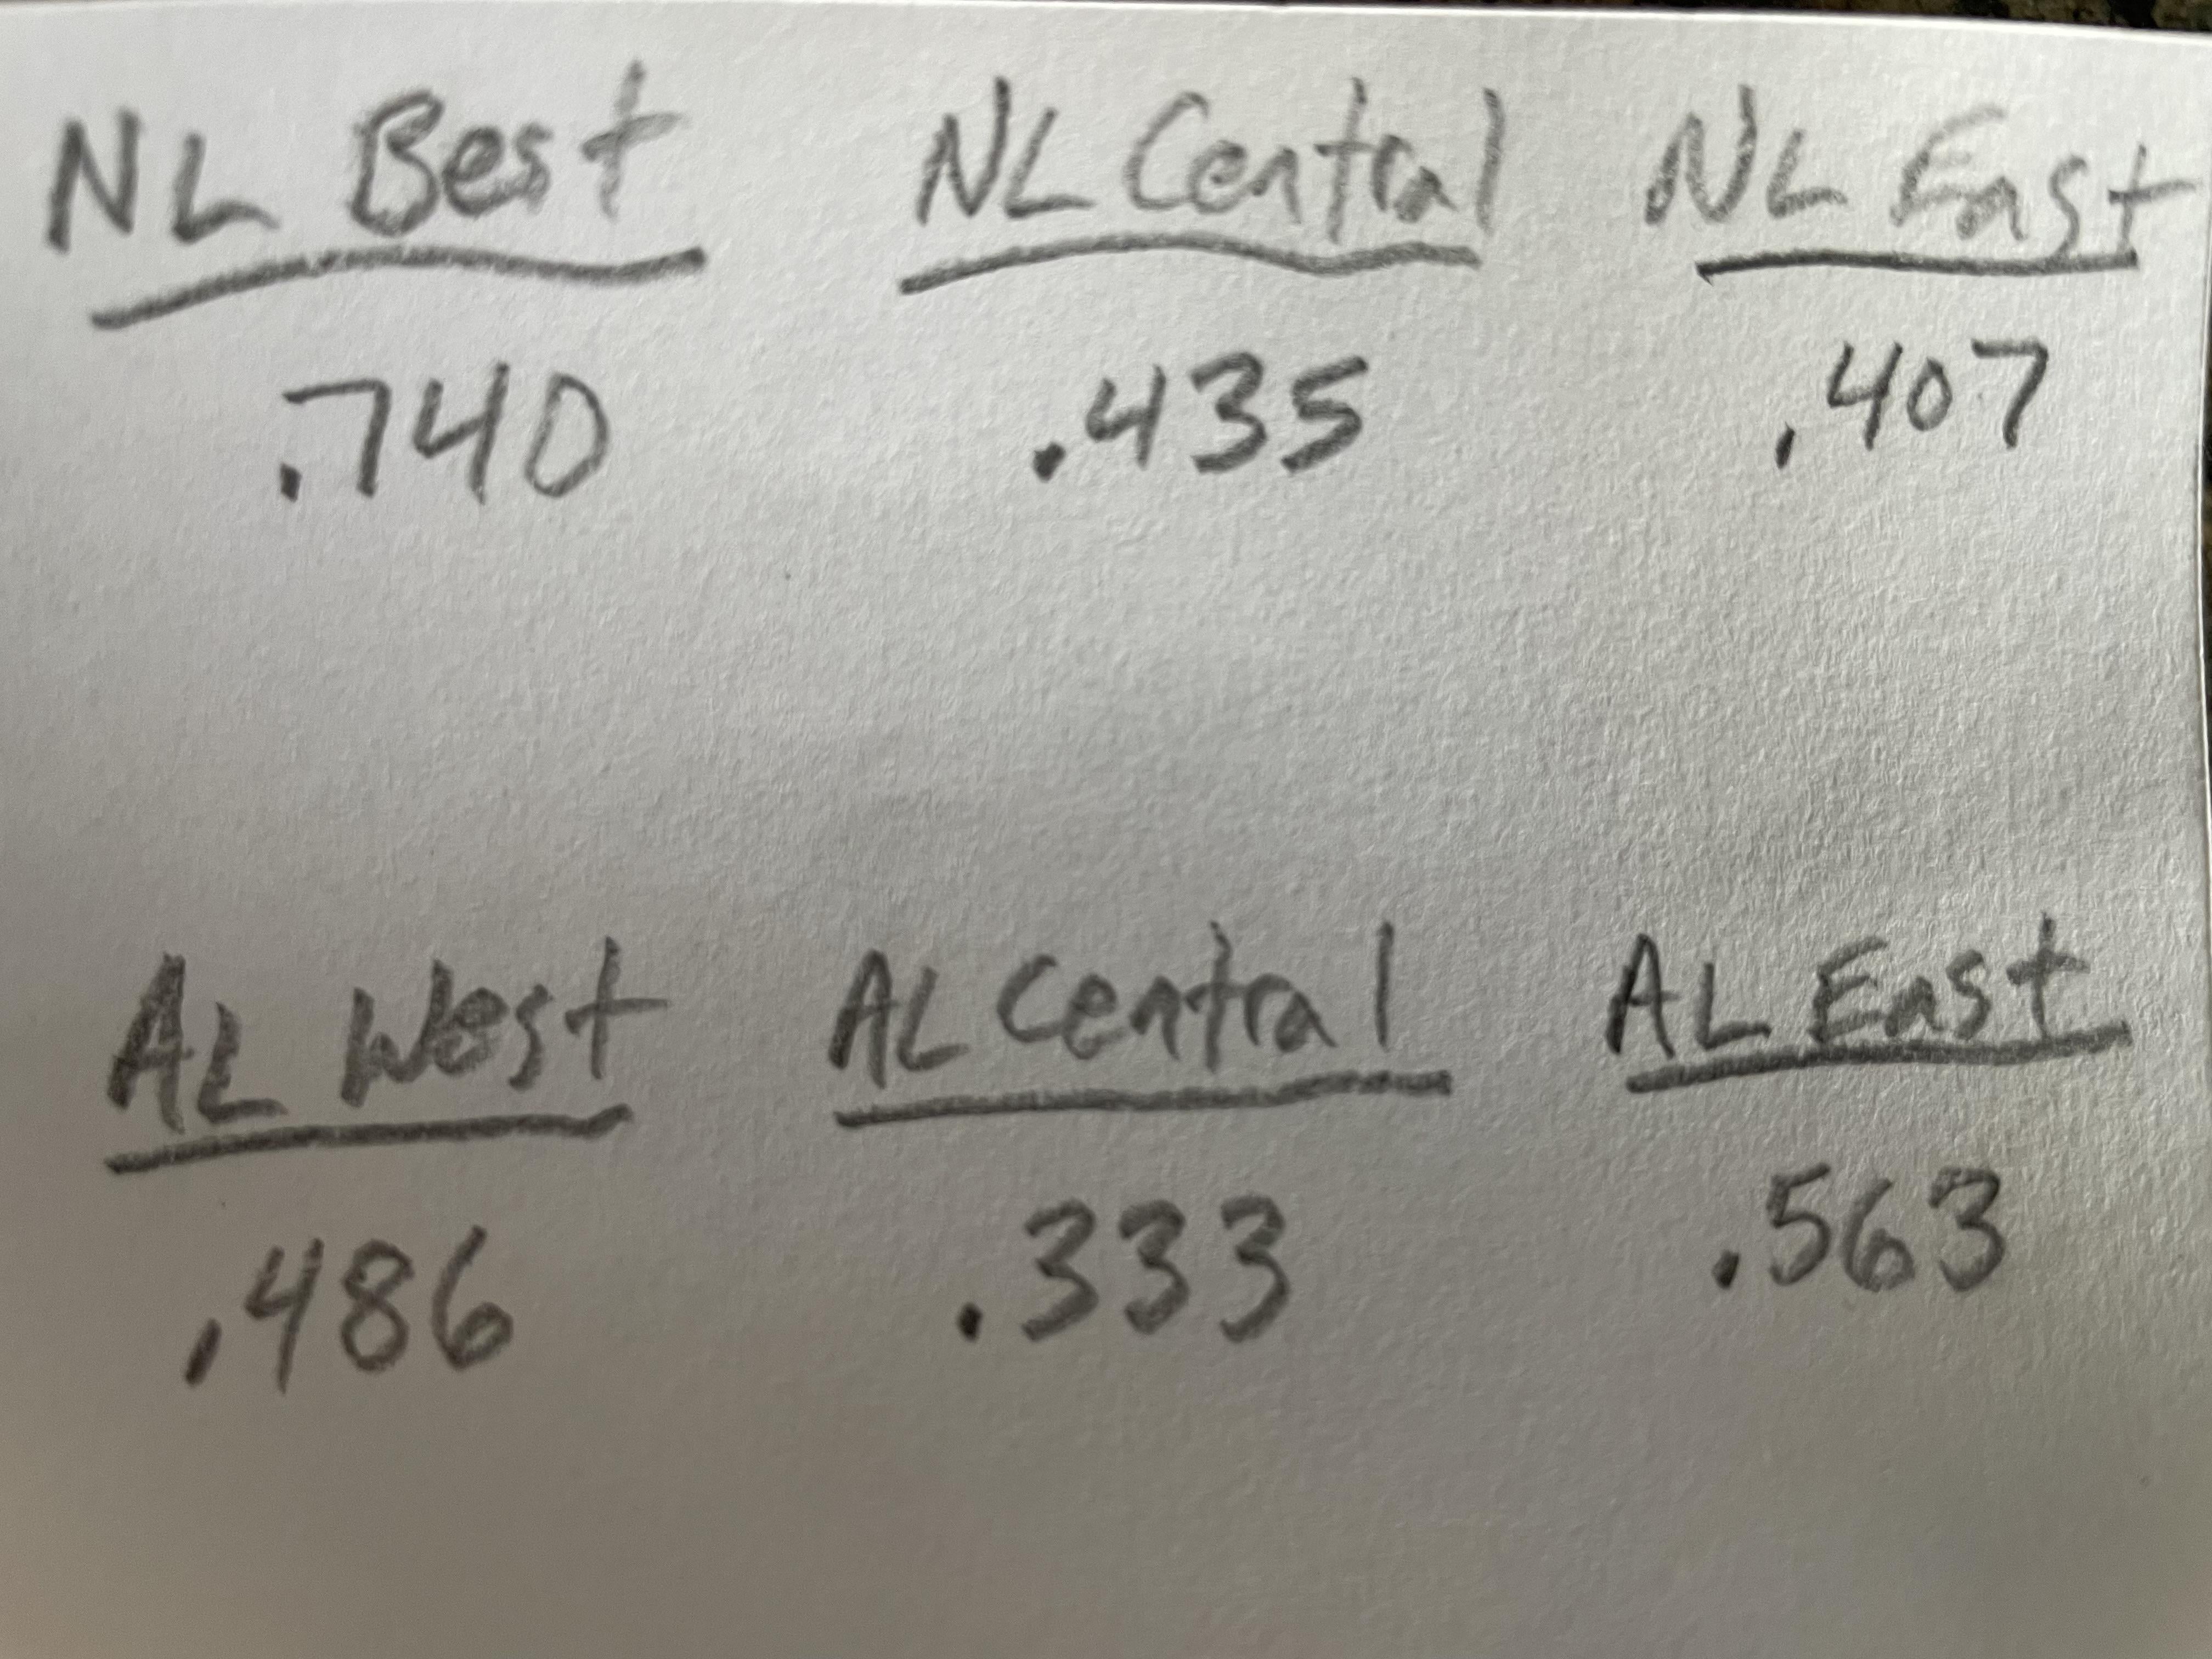 NL Best NL Central NL East
.740 .435 .407
AL West AL Central AL East
.486 .333 .563